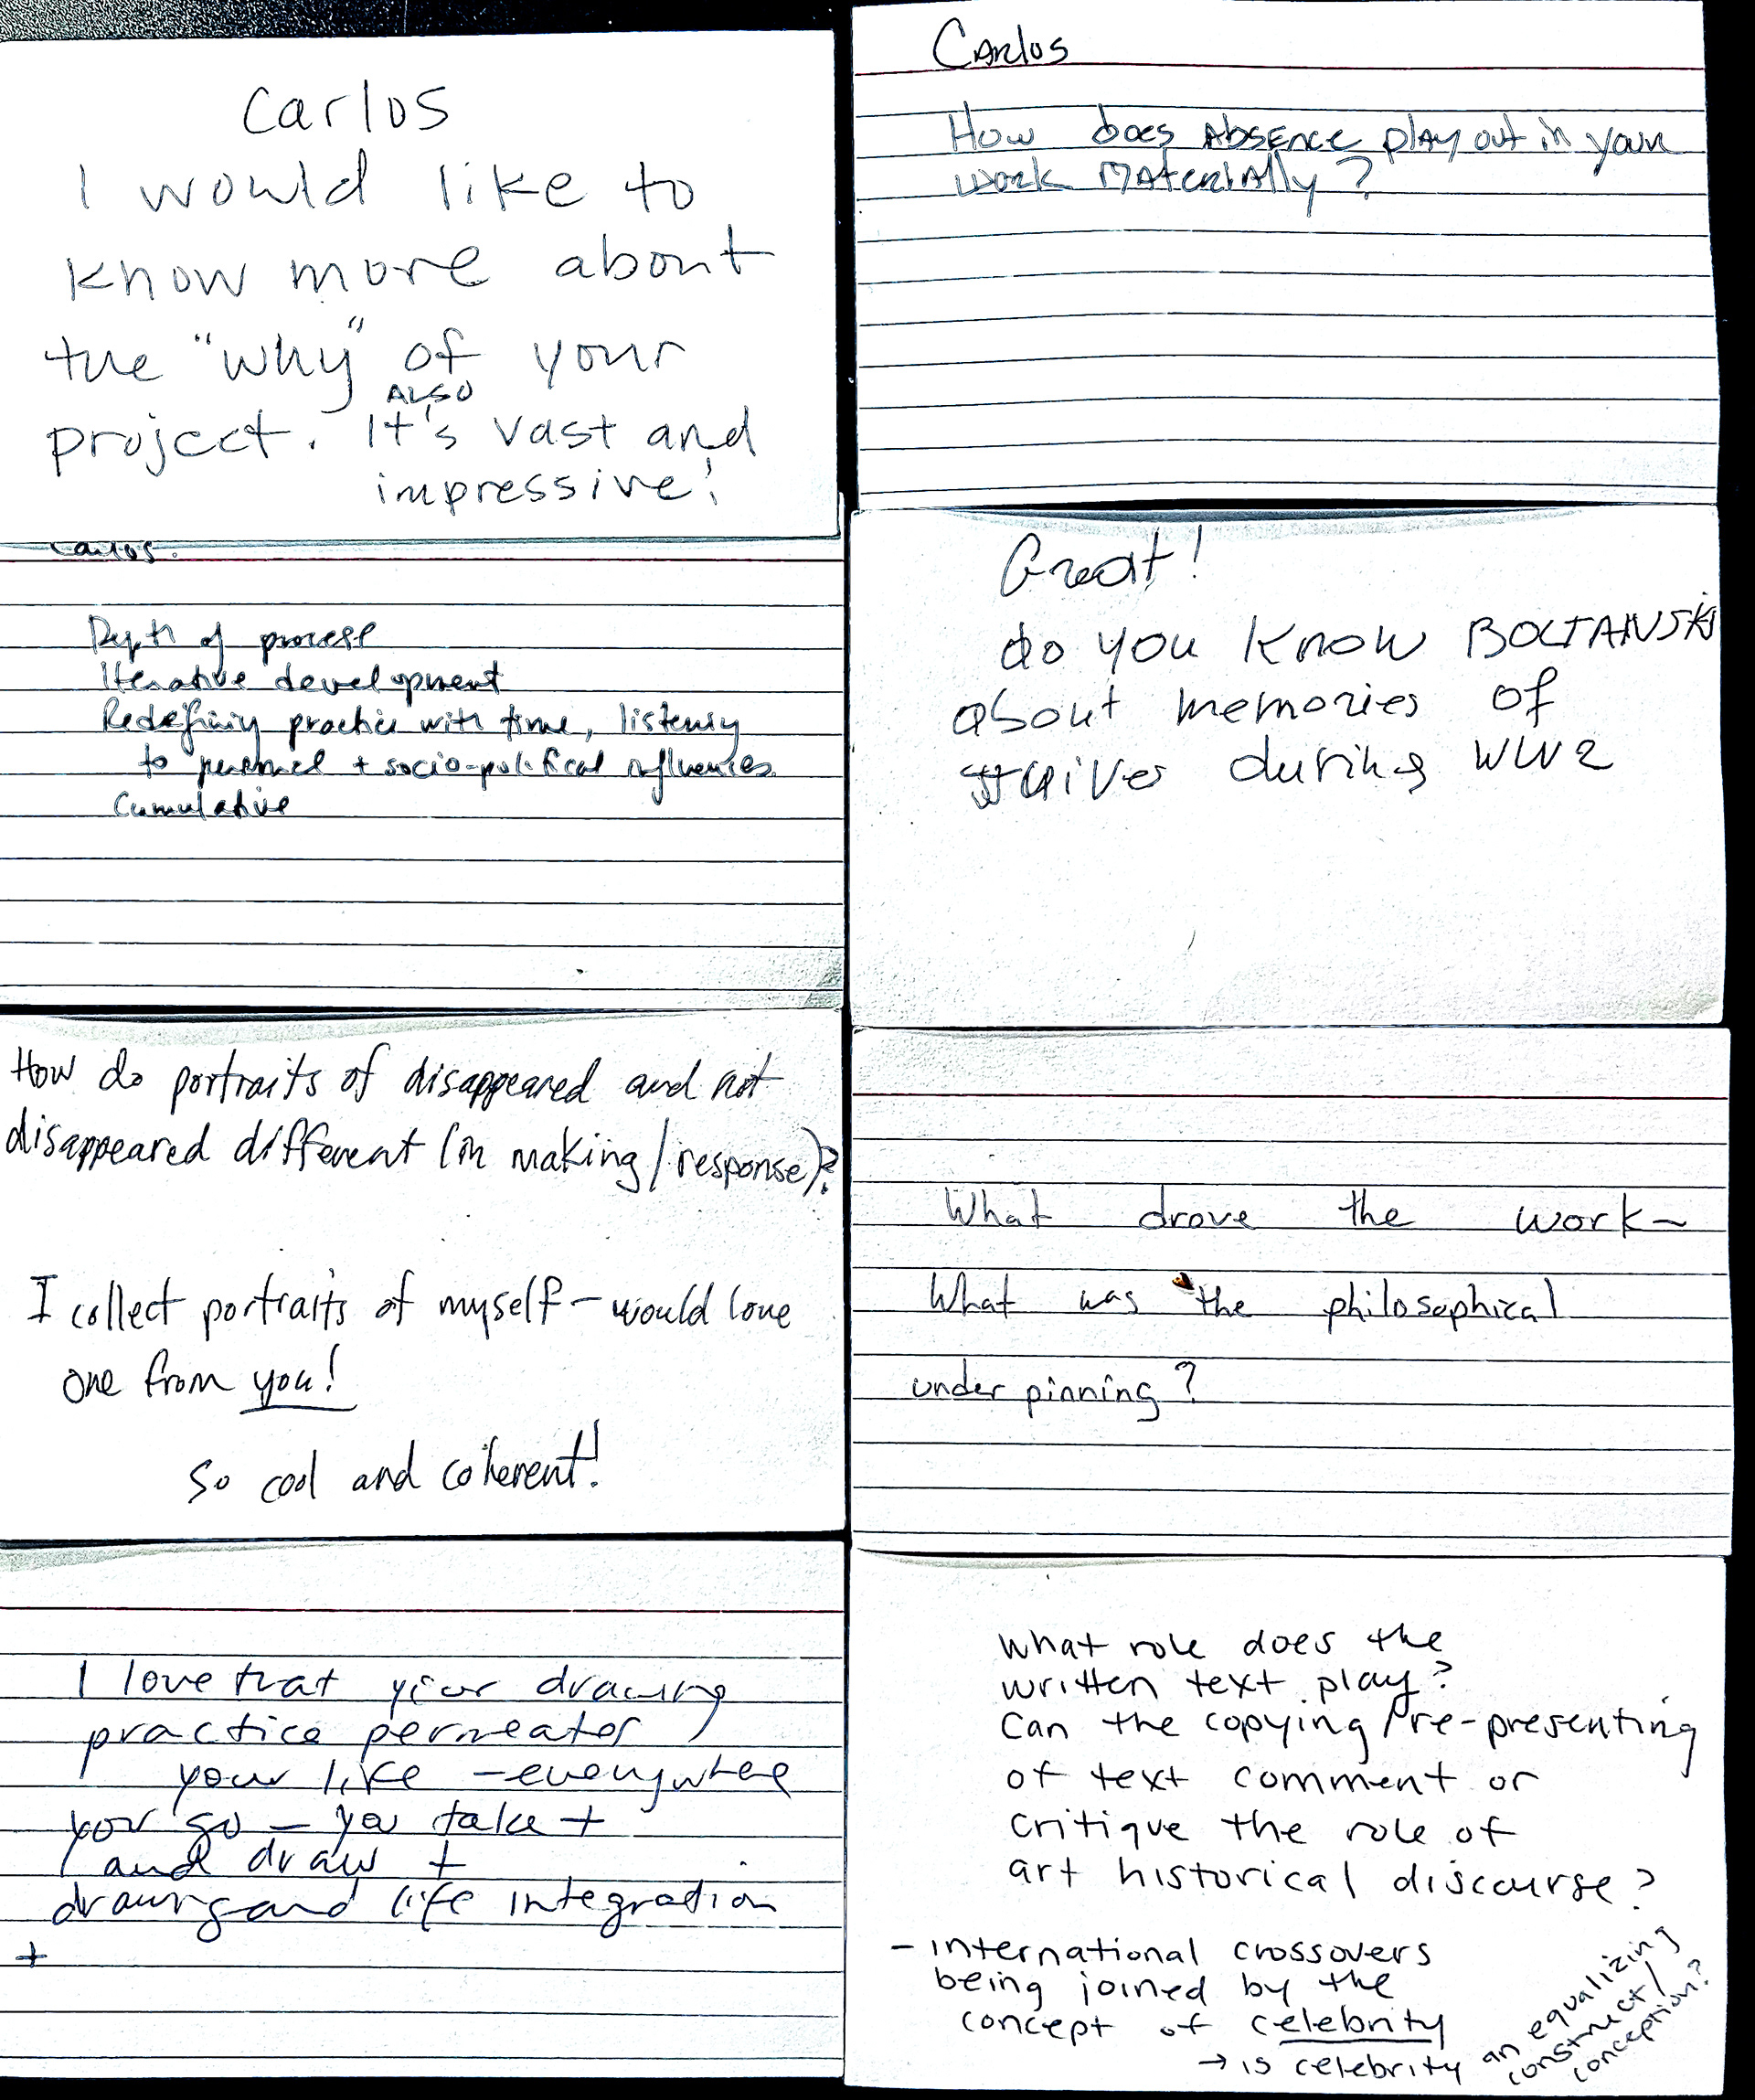 Carlos
I would like to
know more about
the "why" of your
ALSO
project. It's vast and
impressive!
Carlos
How does Absence play out in your
work Materially?
Carlos.
Depth of process
Iterative development
Redefining practice with time, listening
to personal + socio-political influences.
Cumulative
Great!
do you know BOLTANSKI
about memories of
during WW2
How do portraits of disappeared and not
disappeared different (in making/response)?
I collect portraits of myself - would love
one from you!
So cool and coherent!
What drove the work ~
What was the philosophical
under pinning?
I love that your drawing
practice permeates
your life - everywhere
you go - you take +
and draw +
drawing and life integration
+
What role does the
written text play?
Can the copying/re-presenting
of text comment or
critique the role of
art historical discourse?
- international crossovers
being joined by the
concept of celebrity
→ is celebrity
an equalizing
construct/
conception?